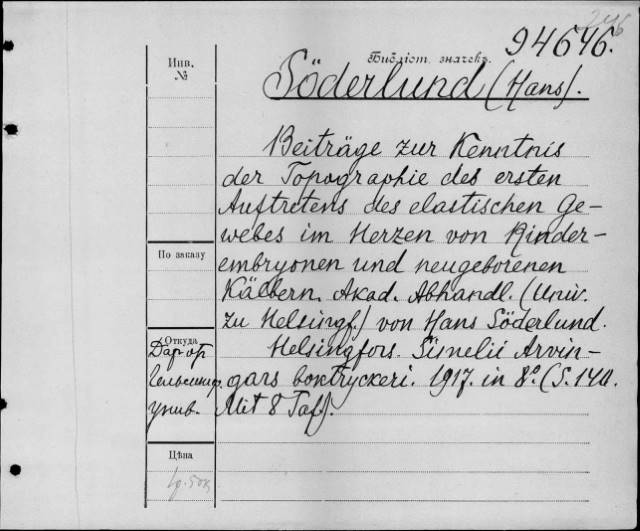 246
94646.
Инв.
№
Библіот. значекъ.
Söderlund (Hans).
Beiträge zur Kenntnis
der Topographie des ersten
Auftretens des elastischen Ge-
webes im Herzen von Rinder-
embryonen und neugeborenen
Kälbern. Akad. Abhandl. (Univ.
zu Helsingf.) von Hans Söderlund.
Helsingfors. Simelii Arvin-
gars boktryckeri. 1917. in 8°. (S. 140.
Mit 8 Taf.).
По заказу
Откуда
Дар от
Гельсингф.
унив.
Цѣна